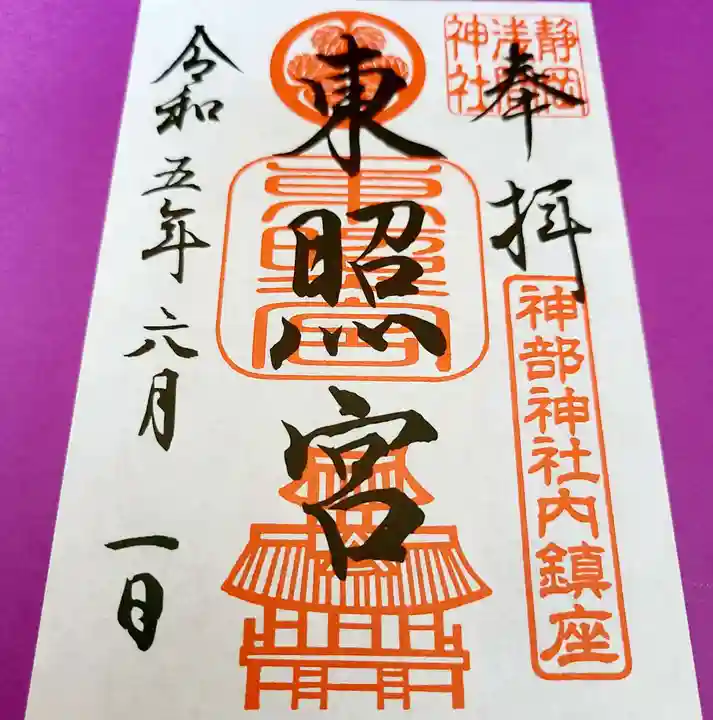 静岡
浅間
神社
奉拝
神部神社内鎮座
東照宮
東照宮
令和五年六月一日